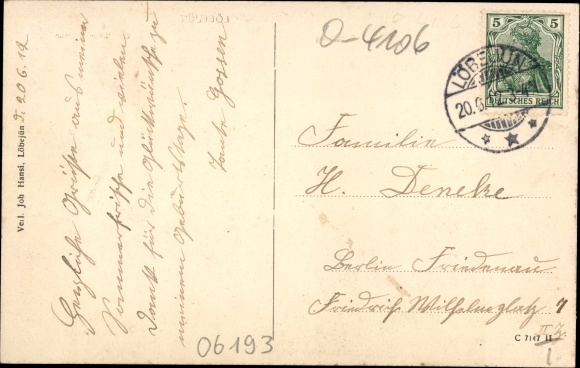 Verl. Joh Hansi, Löbejün
d. 20 6. 12
Herzliche Grüße aus meiner
Sommerfrische und vielen
Dank für die Glückwünsche zu
meinem Geburtstage.
Tante
06193
O-4106
5 5
DEUTSCHES REICH
LÖBEJÜN
20.6
Familie
H. Deneke
Berlin Friedenau
Friedrich Wilhelmplatz 7
II Z.
1.
C 7147 II